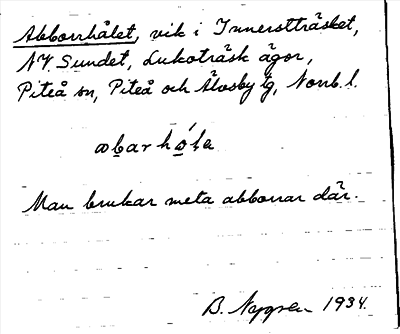 Abborrhålet, vik i Innerstträsket,
NV. Sundet, Lukoträsk ägor,
Piteå sn, Piteå och Älvsby tg, Norrb. l.
abarhóla
Man brukar meta abborrar där.
B. Nygren 1934.